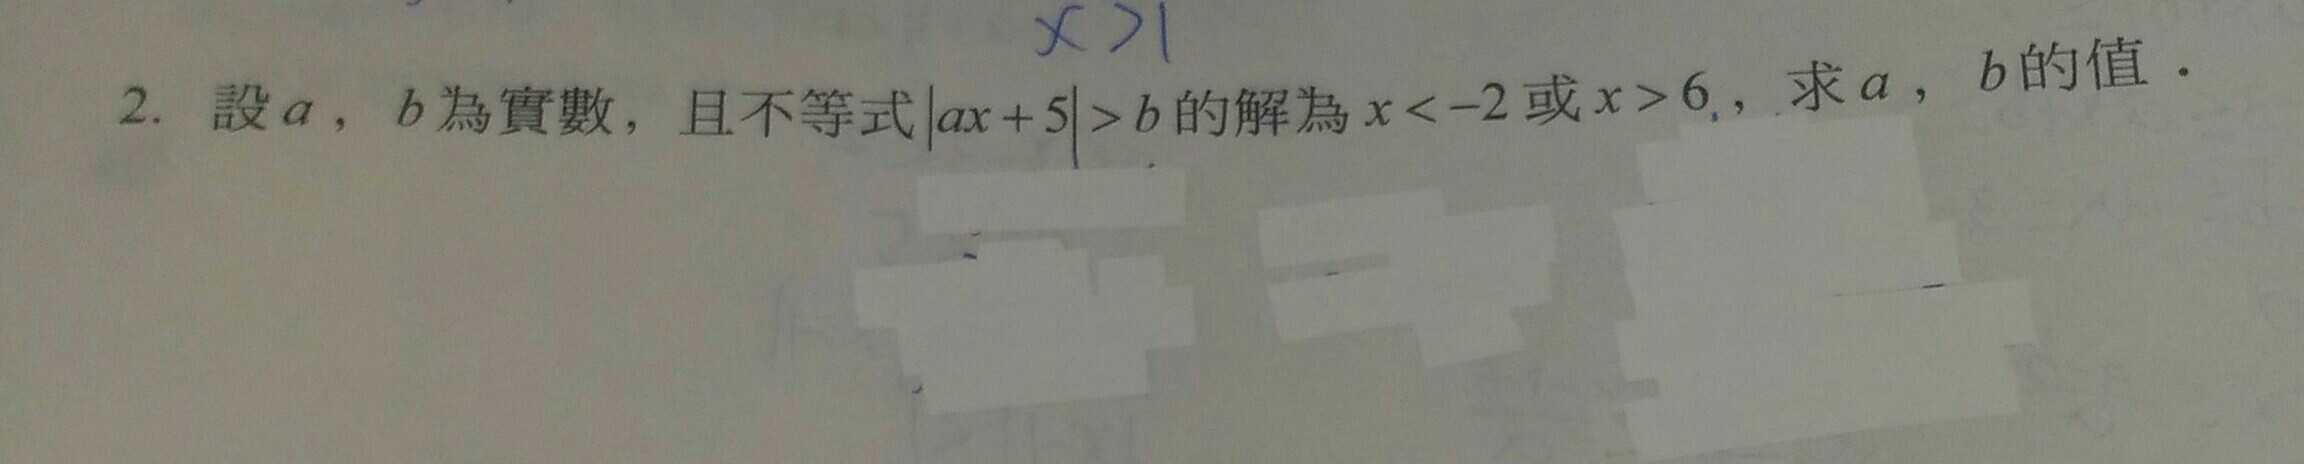 x>1
2. 設a，b為實數，且不等式|ax+5|>b的解為x<-2或x>6，求a，b的值．